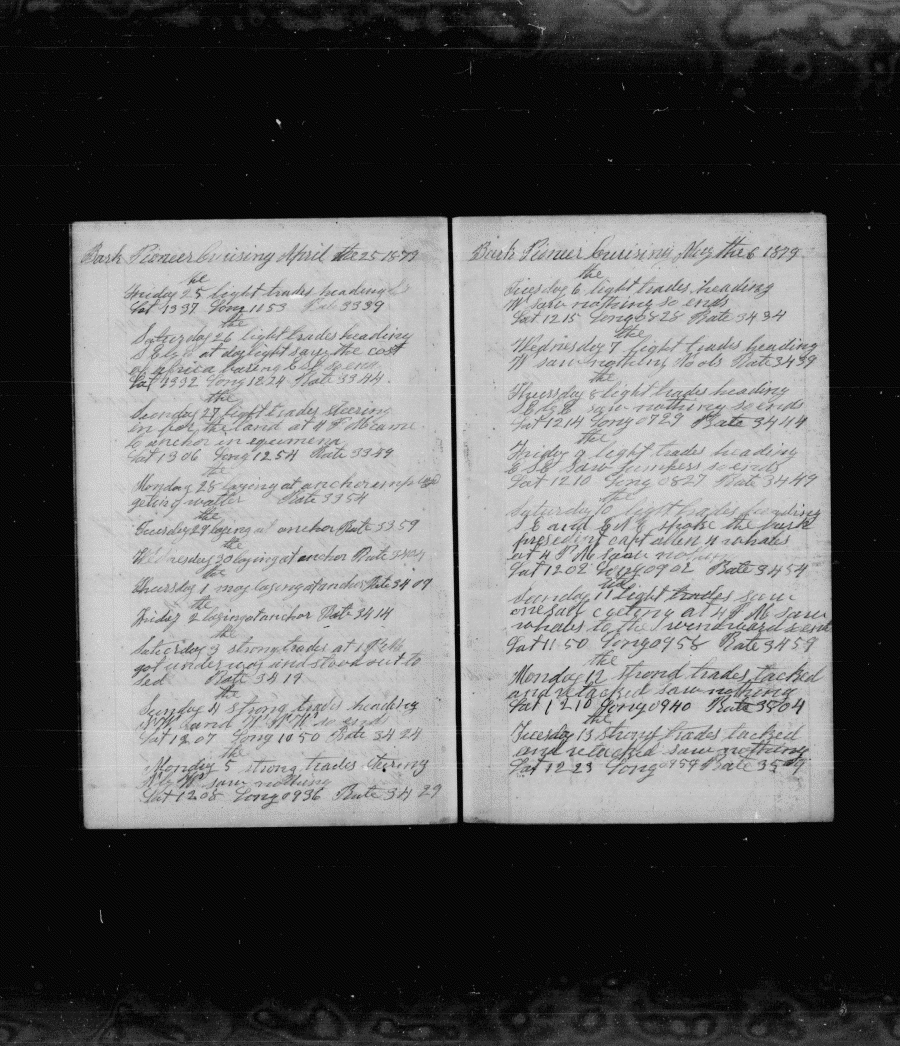 Bark Pioneer Cruising April the 25 1879
the
Friday 25 light trades heading
Lat 1337 Long 1053 Rate 3339
the
Saturday 26 light trades heading
S E by E at daylight saw the cost
of africa baring E S E so ends
Lat 1332 Long 1824 Rate 3344
the
Sunday 27 light trades steering
in for the land at 4 P M came
to anchor in
Lat 1306 Long 1254 Rate 3349
the
Monday 28 laying at anchor
geting watter Rate 3354
the
Tuesday 29 laying at anchor Rate 3359
the
Wednesday 30 laying at anchor Rate 3404
the
Thursday 1 may laying at anchor Rate 3409
the
Friday 2 laying at anchor Rate 3414
the
Saturday 3 strong trades at 1 P M
got under way and stood out to
sea Rate 3419
the
Sunday 4 strong trades heading
N W and W N W so ends
Lat 1207 Long 1050 Rate 3424
the
Monday 5 strong trades stering
N by W saw nothing
Lat 1208 Long 0936 Rate 3429
Bark Pioneer Cruising May the 6 1879
the
Tuesday 6 light trades heading
W saw nothing so ends
Lat 1215 Long 0828 Rate 3434
the
Wednesday 7 light trades heading
W saw nothing No obs Rate 3439
the
Thursday 8 light trades heading
S E by E saw nothing so ends
Lat 1214 Long 0729 Rate 3444
the
Friday 9 light trades heading
E S E Saw jumpers so ends
Lat 1210 Long 0827 Rate 3449
the
Saturday 10 light trades heading
S E and E N E spoke the bark
president capt allen 4 whales
at 4 P M saw
Lat 1202 Long 0902 Rate 3454
the
Sunday 11 light trades saw
one sail cutting at 4 P M saw
whales to the windward so ends
Lat 1150 Long 0958 Rate 3459
the
Monday 12 strond trades tacked
and retacked saw nothing
Lat 1210 Long 0940 Rate 3504
the
Tuesday 13 strong trades tacked
and retacked saw nothing
Lat 1223 Long 0959 Rate 3509